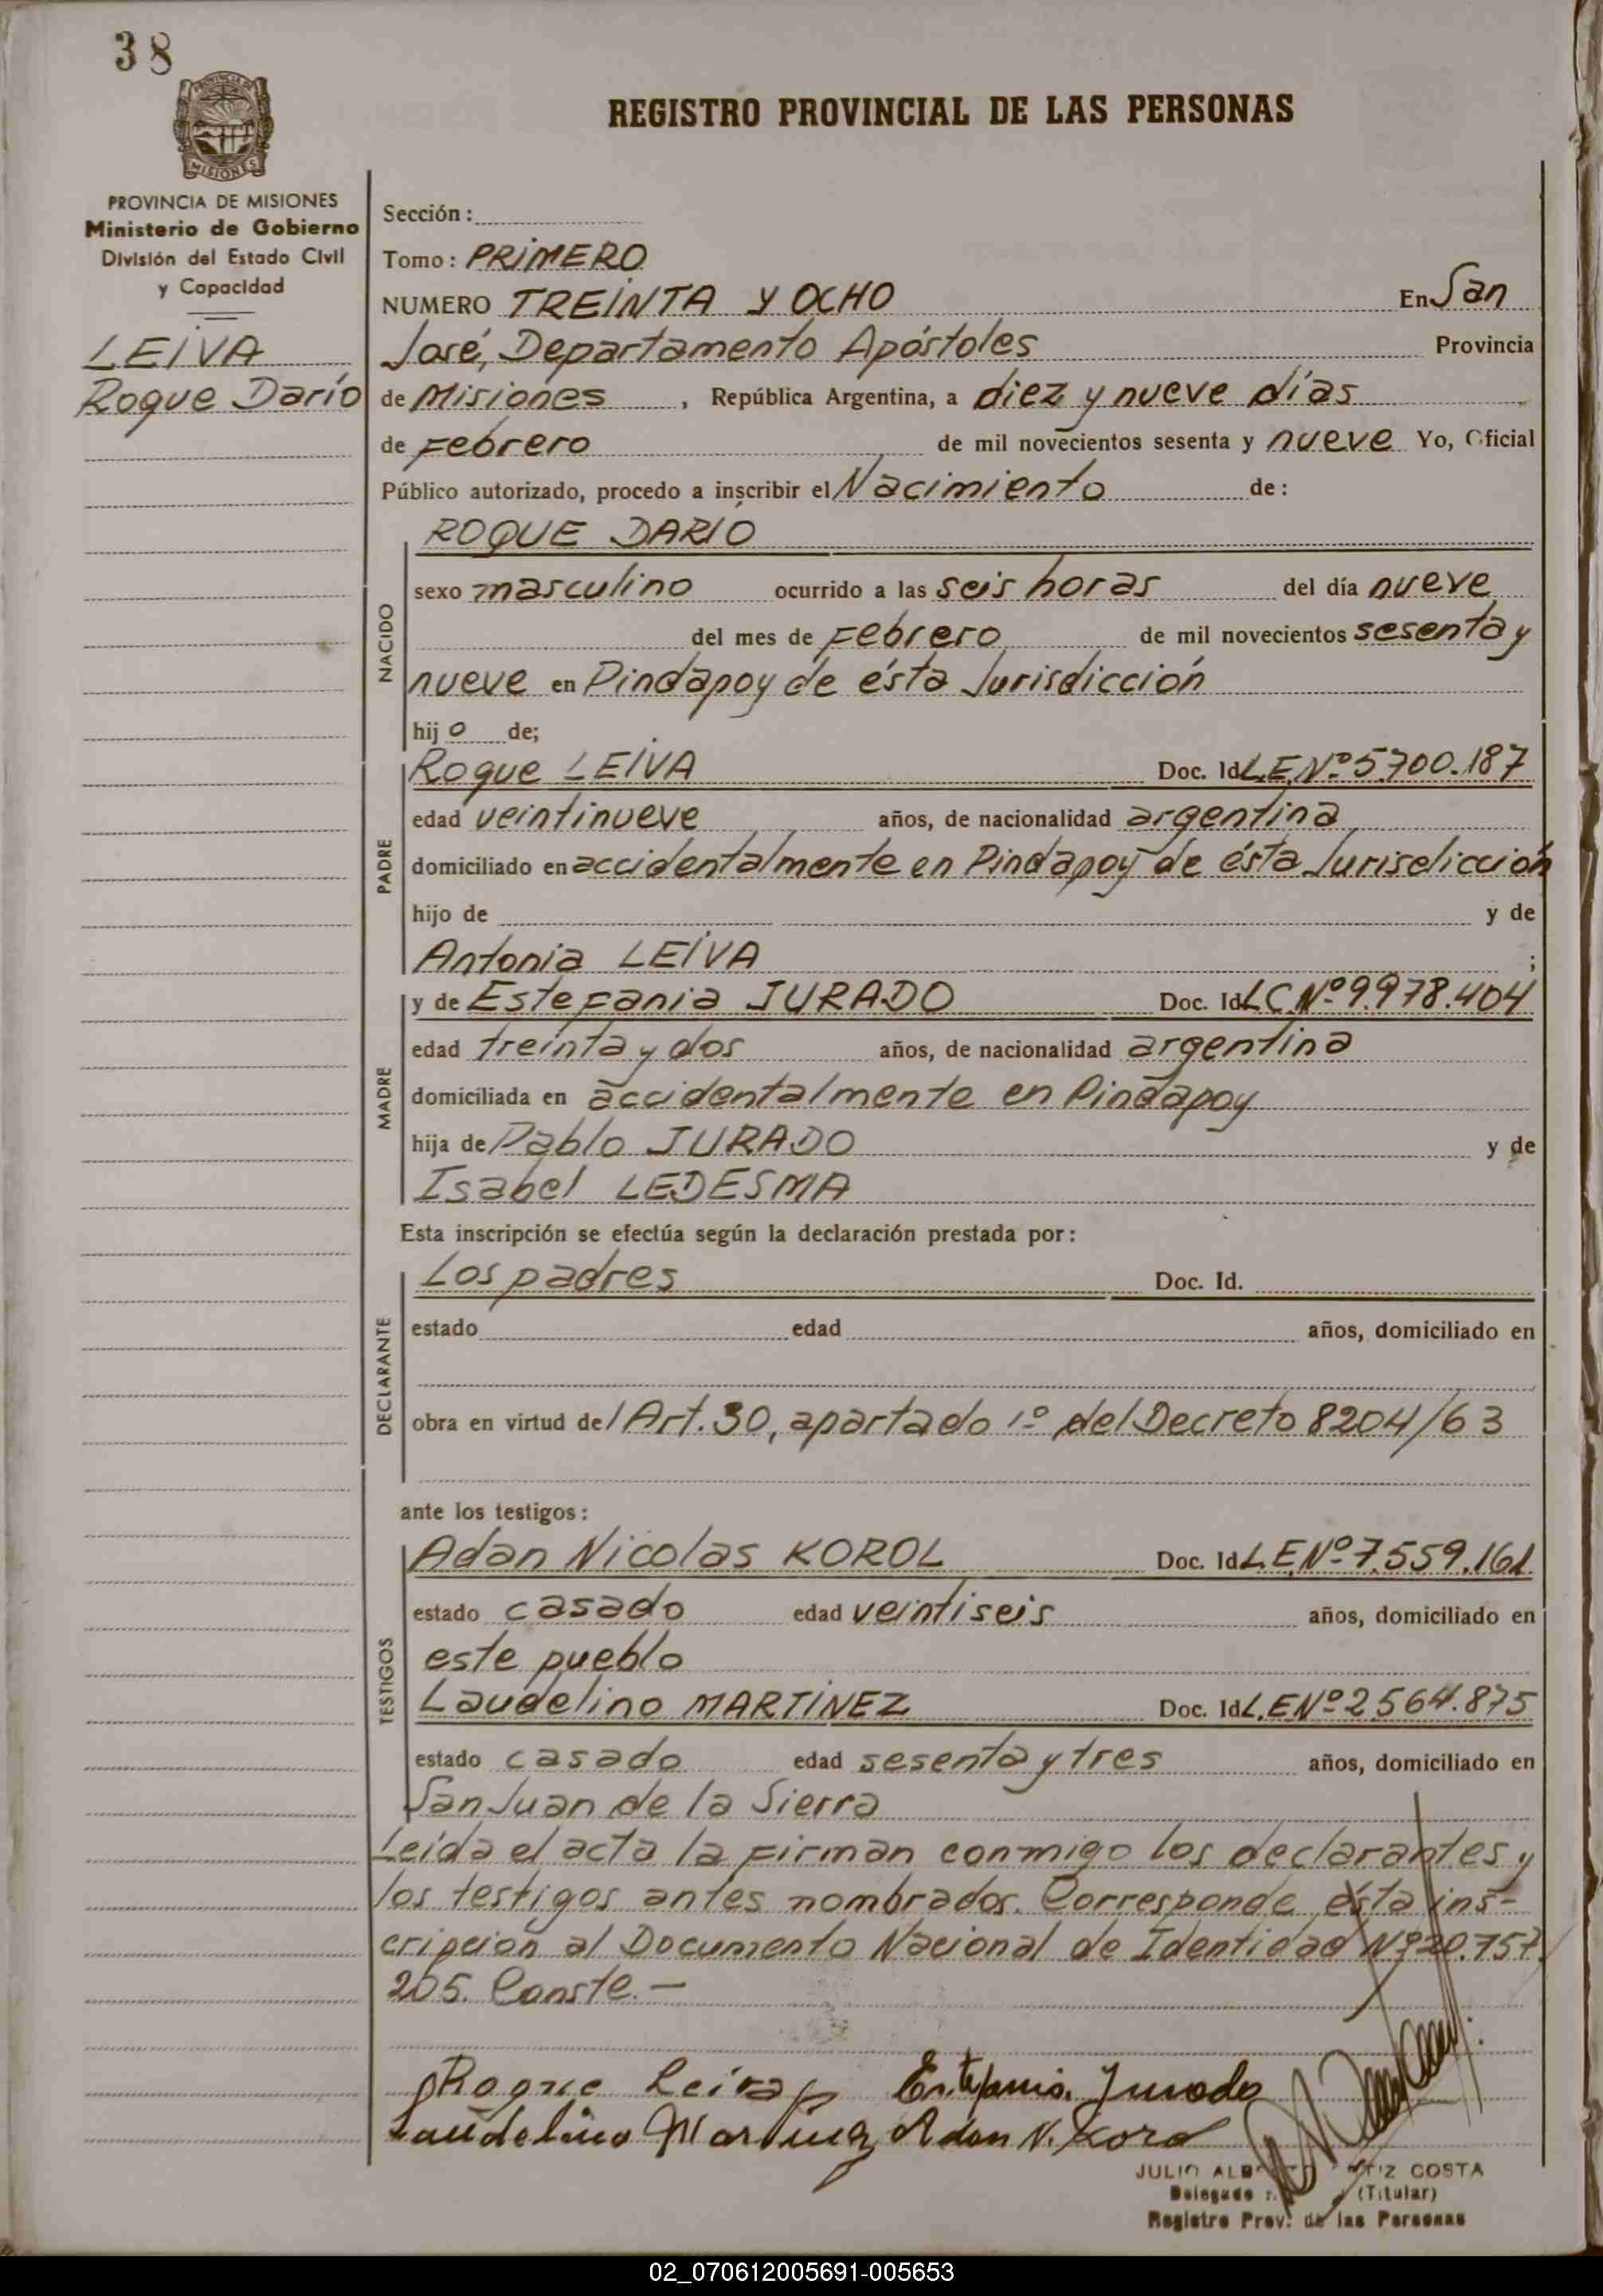 38
PROVINCIA DE
MISIONES
REGISTRO PROVINCIAL DE LAS PERSONAS
PROVINCIA DE MISIONES
Ministerio de Gobierno
División del Estado Civil
y Capacidad
LEIVA
Roque Darío
Sección:
Tomo: PRIMERO
NUMERO TREINTA Y OCHO En San
José, Departamento Apóstoles Provincia
de Misiones, República Argentina, a diez y nueve días
de Febrero de mil novecientos sesenta y nueve Yo, Oficial
Público autorizado, procedo a inscribir el Nacimiento de:
NACIDO
ROQUE DARIO
sexo masculino ocurrido a las seis horas del día nueve
del mes de Febrero de mil novecientos sesenta y
nueve en Pindapoy de ésta Jurisdicción
hijo de;
PADRE
Roque LEIVA Doc. Id L.E.Nº 5.700.187
edad veintinueve años, de nacionalidad argentina
domiciliado en accidentalmente en Pindapoy de ésta Jurisdicción
hijo de y de
Antonia LEIVA ;
MADRE
y de Estefania JURADO Doc. Id L.C.Nº 9.978.404
edad treinta y dos años, de nacionalidad argentina
domiciliada en accidentalmente en Pindapoy
hija de Pablo JURADO y de
Isabel LEDESMA
Esta inscripción se efectúa según la declaración prestada por:
DECLARANTE
Los padres Doc. Id.
estado edad años, domiciliado en
obra en virtud del Art. 30, apartado 1º del Decreto 8204/63
ante los testigos:
TESTIGOS
Adan Nicolas KOROL Doc. Id L.E.Nº 7.559.161
estado casado edad veintiseis años, domiciliado en
este pueblo
Laudelino MARTINEZ Doc. Id L.E.Nº 2.564.875
estado casado edad sesenta y tres años, domiciliado en
San Juan de la Sierra
Leida el acta la firman conmigo los declarantes y
los testigos antes nombrados. Corresponde ésta ins-
cripcion al Documento Nacional de Identidad Nº 20.757.
205. Conste.—
Roque Leiva Estefania Jurado
Laudelino Martinez Adan N. Korol
JULIO COSTA
Delegado (Titular)
Registro Prov. de las Personas
02_070612005691-005653